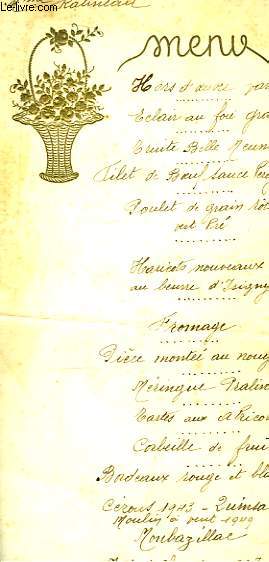 Le-livre.com
menu
Hors d'œuvre
Eclair au foie gra
Truite Belle Meun
Filet de Bœuf Sauce
Poulet de grain rôt
Haricots nouveaux
au beurre d'Isigny
Fromage
Pièce montée au noug
Méringue Pralin
Tartes aux abrico
Corbeille de frui
Bordeaux rouge et bla
Cérons 1943 - Quinsa
Moulin à vent 1949
Monbazillac